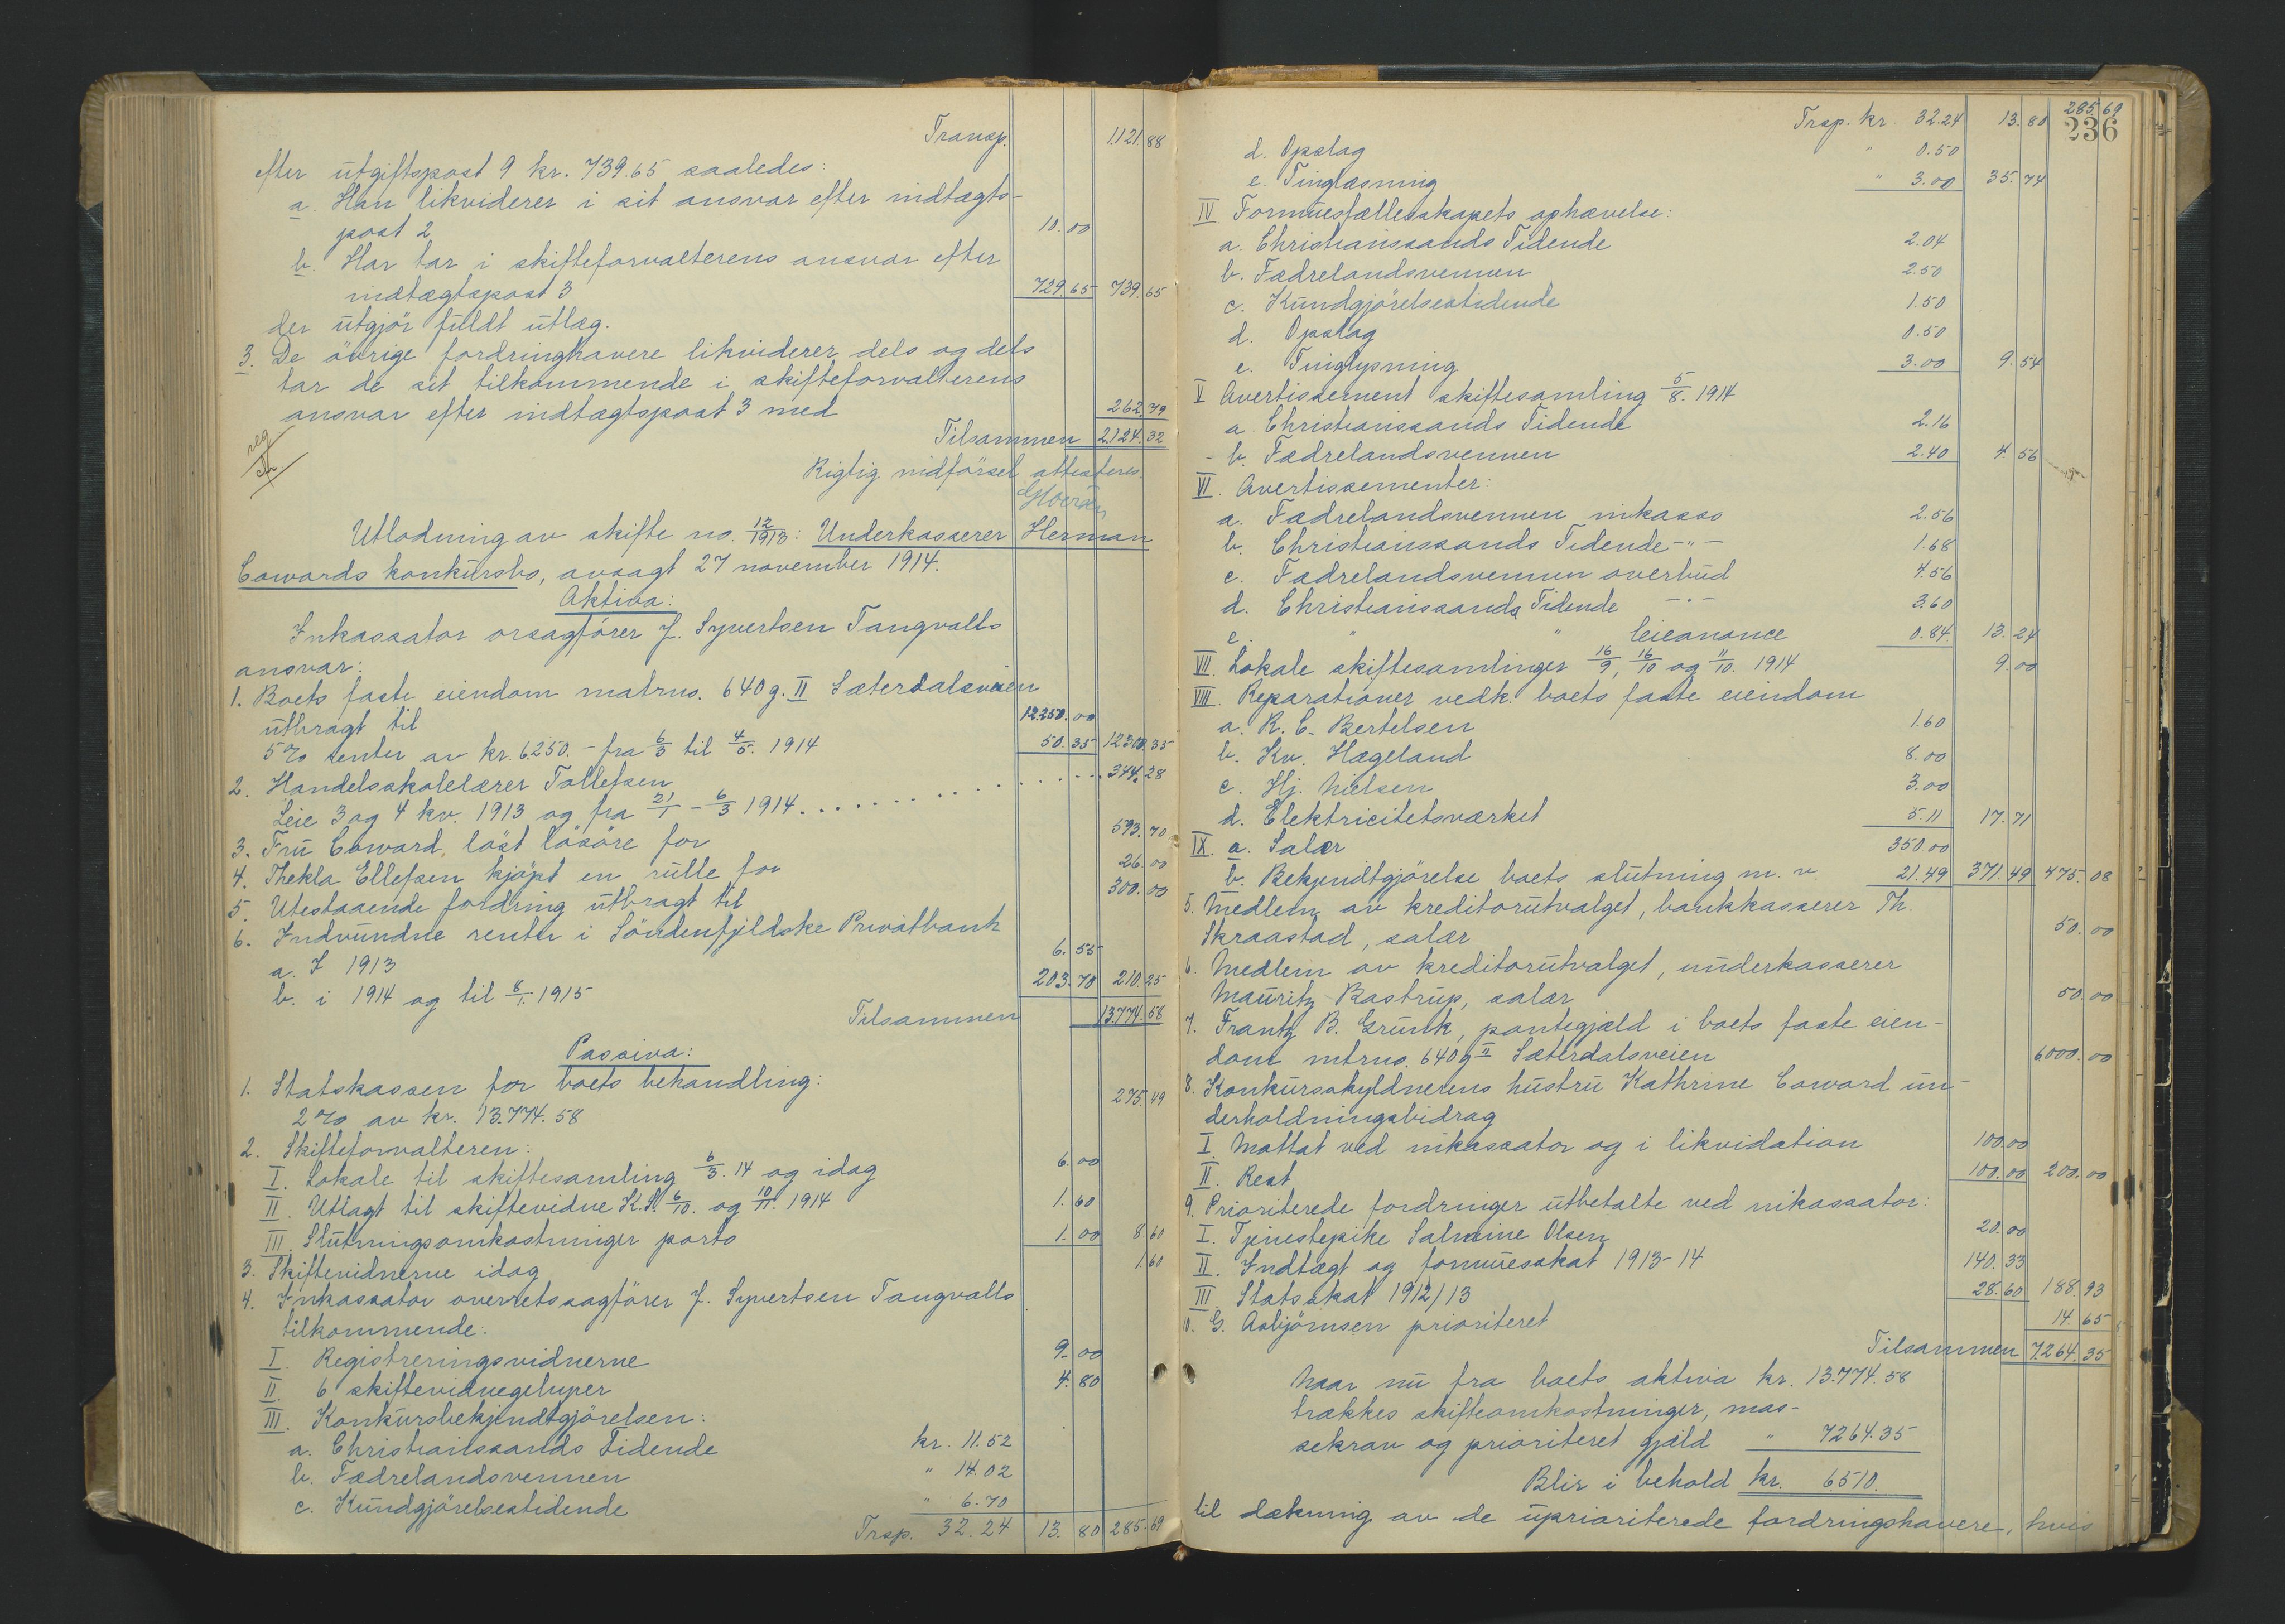 Transp. 1.121.88
efter utgiftspost 9 kr. 739.65 saaledes:
a. Han likviderer i sit ansvar efter indtægts-
post 2 10.00
b. Har tar i skifteforvalterens ansvar efter
indtægtspost 3 729.65 739.65
der utgjör fuldt utlæg.
3. De övrige fordringhavere likviderer dels og dels
tar de sit tilkommende i skifteforvalterens
ansvar efter indtægtspost 3 med 262.79
Tilsammen 2124.32
Rigtig indförsel attesteres.
Utlodning av skifte no. 12/1913: Underkasserer Herman
Cowards konkursbo, avsagt 27 november 1914.
Aktiva:
Inkassator orsagförer J. Syvertsen Tangvalls
ansvar:
1. Boets faste eiendom matrno. 640 g. II Sæterdalsveien
utbragt til 12.250.00
5% renter av kr. 6.250.- fra 6/3 til 4/5. 1914 50.35 12300.35
2. Handelsskolelærer Tollefsen
Leie 3 og 4 kv. 1913 og fra 21/1 - 6/3 1914 . . . . . . . . . . . . 344.28
3. Fru Coward, löst lösöre for 593.70
4. Thekla Ellefsen kjöpt en rulle for 26.00
5. Utestaaende fordring utbragt til 300.00
6. Indvundne renter i Söndenfjeldske Privatbank
a. I 1913 6.55
b. i 1914 og til 8/1. 1915 203.70 210.25
Tilsammen 13.774.58
Passiva:
1. Statskassen for boets behandling:
2% av kr. 13.774.58 275.49
2. Skifteforvalteren:
I. Lokale til skiftesamling 6/3. 14 og idag 6.00
II. Utlagt til skiftevidne K.S. 6/10. og 10/11. 1914 1.60
III. Slutningsomkostninger porto 1.00 8.60
3. Skiftevidnerne idag 1.60
4. Inkassator overretssagförer J. Syvertsen Tangvalls
tilkommende:
I. Registreringsvidnerne 9.00
II. 6 skiftevidnegebyrer 4.80
III. Konkursbekjendtgjörelsen:
a. Christianssands Tidende kr. 11.52
b. Fædrelandsvennen " 14.02
c. Kundgjörelsestidende " 6.70
Trsp. 32.24 13.80 285.69
Trsp. kr. 32.24 13.80 285.69
236
d. Opslag " 0.50
e. Tinglæsning " 3.00 35.74
IV. Formuesfællesskapets ophævelse:
a. Christianssands Tidende 2.04
b. Fædrelandsvennen 2.50
c. Kundgjörelsestidende 1.50
d. Opslag 0.50
e. Tinglysning 3.00 9.54
V Avertissement skiftesamling 5/8. 1914
a. Christianssands Tidende 2.16
b. Fædrelandsvennen 2.40 4.56
VI. Avertissementer:
a. Fædrelandsvennen inkasso 2.56
b. Christianssands Tidende -"- 1.68
c. Fædrelandsvennen overbud 4.56
d. Christianssands Tidende -"- 3.60
e. " " leieanonce 0.84 13.24
VII. Lokale skiftesamlinger 16/9, 16/10 og 11/10. 1914 9.00
VIII. Reparationer vedk. boets faste eiendom
a. R. C. Bertelsen 1.60
b. Kv. Hægeland 8.00
c. Hj. Nielsen 3.00
d. Elektricitetsværket 5.11 17.71
IX. a. Salær 350.00
b. Bekjendtgjörelse boets slutning m. v. 21.49 371.49 475.08
5. Medlem av kreditorutvalget, bankkasserer Th.
Skraastad, salær 50.00
6. Medlem av kreditorutvalget, underkasserer
Mauritz Bastrup, salær 50.00
7. Frantz B. Grunk, pantegjæld i boets faste eien-
dom mtrno. 640 g II Sæterdalsveien 6000.00
8. Konkursskyldnerens hustru Kathrine Coward un-
derholdningsbidrag
I Mottat ved inkassator og i likvidation 100.00
II. Rest 100.00 200.00
9. Prioriterede fordringer utbetalte ved inkassator:
I. Tjenestepike Salmine Olsen 20.00
II. Indtægt og formuesskat 1913-14 140.33
III. Statsskat 1912/13 28.60 188.93
10. G. Asbjörnsen prioriteret 14.65
Tilsammen 7.264.35
Naar nu fra boets aktiva kr. 13.774.58
trækkes skifteomkostninger, mas-
sekrav og prioriteret gjæld " 7264.35
Blir i behold kr. 6510.
til dækning av de uprioriterede fordringshavere, hvis